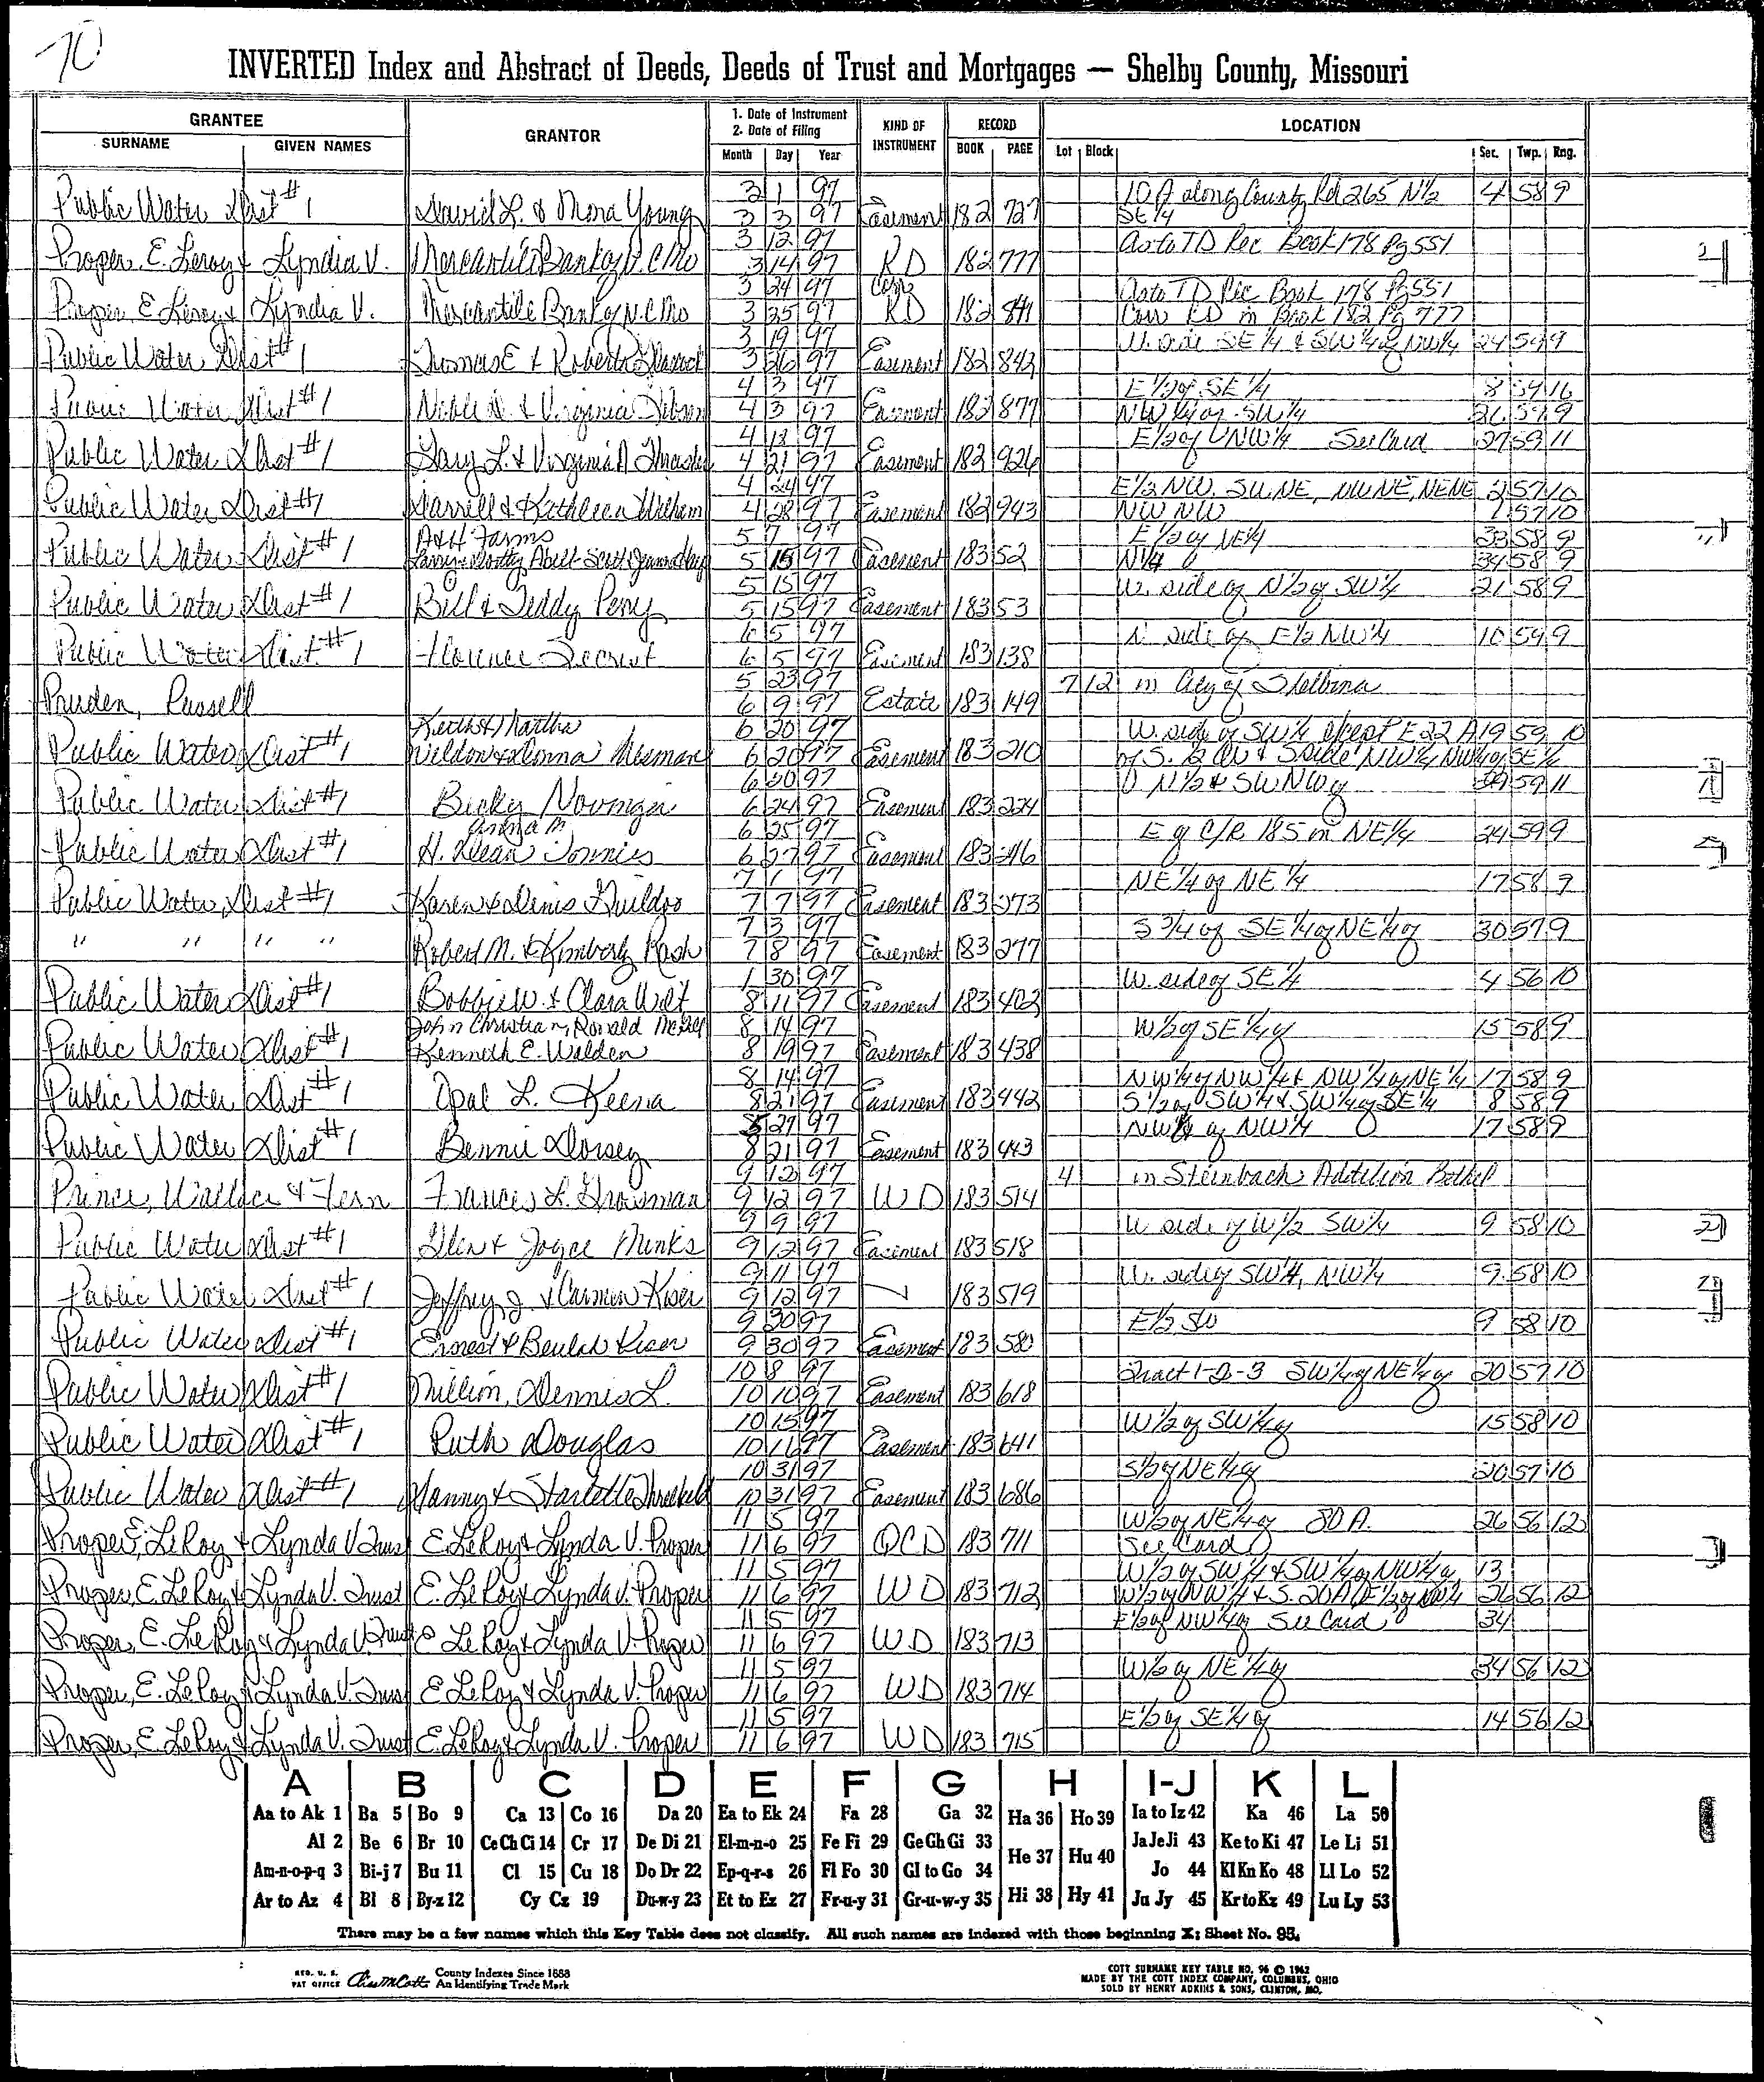 70
INVERTED Index and Abstract of Deeds, Deeds of Trust and Mortgages — Shelby County, Missouri
GRANTEE
SURNAME GIVEN NAMES
GRANTOR
1. Date of Instrument
2. Date of Filing
Month Day Year
KIND OF INSTRUMENT
RECORD
BOOK PAGE
LOCATION
Lot Block Sec. Twp. Rng.
3 1 97 10 A along County Rd 265 N½ 4 58 9
Public Water Dist #1 David L. & Mona Young 3 3 97 Easement 182 727 SE¼
3 12 97 as to TD Rec Book 178 Pg 551
Proper, E. Leroy & Lyndia V. Mercantile Bank of N.C. Mo 3 14 97 RD 182 777
3 24 97 Corr as to TD Rec Book 178 Pg 551
Proper E Leroy & Lyndia V. Mercantile Bank of N.C. Mo 3 25 97 RD 182 841 Corr RD in Book 182 Pg 777
3 19 97 W. side SE¼ & SW¼ of NW¼ 24 59 9
Public Water Dist #1 Thomas E & Roberta 3 26 97 Easement 182 842
4 3 97 E½ of SE¼ 8 59 16
Public Water Dist #1 & Virginia 4 3 97 Easement 182 877 NW¼ of SW¼ 26 59 9
4 13 97 E½ of NW¼ See Card 27 59 11
Public Water Dist #1 Gary L. & Virginia 4 21 97 Easement 182 926
4 24 97 E½ NW, SW NE, NW NE, NE NE 2 57 10
Public Water Dist #1 Darrell & Kathleen Wilham 4 28 97 Easement 182 943 NW NW 1 57 10
A&H Farms 5 7 97 E½ of NE¼ 33 58 9
Public Water Dist #1 5 15 97 Easement 183 52 34 58 9
5 15 97 W. side of N½ of SW¼ 21 58 9
Public Water Dist #1 Bill & Teddy Perry 5 15 97 Easement 183 53
6 5 97 N side of E½ NW¼ 10 59 9
Public Water Dist #1 Florence Secrist 6 5 97 Easement 183 138
5 23 97 7 12 in City of Shelbina
Pruden, Russell 6 9 97 Estate 183 149
Keith & Martha 6 20 97 W. side of SW¼ except E 22 A 19 59 10
Public Water Dist #1 Weldon & Donna Mesmer 6 20 97 Easement 183 210
6 20 97 N½ & SW NW of 59 11
Public Water Dist #1 Becky Novinger 6 24 97 Easement 183 224
6 25 97 E of C/R 185 in NE¼ 24 59 9
Public Water Dist #1 H. Dean 6 27 97 Easement 183 246
7 1 97 NE¼ of NE¼ 17 58 9
Public Water Dist #1 Karen & Denis 7 7 97 Easement 183 273
7 3 97 S 3/4 of SE¼ of NE¼ of 30 57 9
" " " " Robert M. & Kimberly Rash 7 8 97 Easement 183 277
1 30 97 W. side of SE¼ 4 56 10
Public Water Dist #1 Bobbie W. & Clara Wilt 8 11 97 Easement 183 402
John Christian, Ronald 8 14 97 W½ of SE¼ of 15 58 9
Public Water Dist #1 Kenneth E. Walden 8 19 97 Easement 183 438
8 14 97 NW¼ of NW¼ & NW¼ of NE¼ 17 58 9
Public Water Dist #1 Opal L. Keena 8 21 97 Easement 183 442 S½ of SW¼ & SW¼ of SE¼ 8 58 9
21 97 NW¼ of NW¼ 17 58 9
Public Water Dist #1 Bennie Dorsey 8 21 97 Easement 183 443
9 12 97 4 in Steinbach Addition Bethel
Prince, Wallace & Fern Frances L. Grossman 9 12 97 WD 183 514
9 9 97 W side of W½ SW¼ 9 58 10
Public Water Dist #1 Glen & Joyce Minks 9 12 97 Easement 183 518
9 11 97 W. side of SW¼, NW¼ 9 58 10
Public Water Dist #1 Jeffrey J. & Carmen Kiser 9 12 97 183 519
9 30 97 E½ SW 9 58 10
Public Water Dist #1 Ernest & Beulah Kiser 9 30 97 Easement 183 580
10 8 97 Tract 1-2-3 SW¼ of NE¼ of 20 57 10
Public Water Dist #1 Million, Dennis L. 10 10 97 Easement 183 618
10 15 97 W½ of SW¼ of 15 58 10
Public Water Dist #1 Ruth Douglas 10 16 97 Easement 183 641
10 31 97 S½ of NE¼ of 20 57 10
Public Water Dist #1 Manny & Starlette Threlkeld 10 31 97 Easement 183 686
11 5 97 W½ of NE¼ of 80 A. 26 56 12
Proper E, LeRoy & Lynda V Trust E LeRoy & Lynda V. Proper 11 6 97 QCD 183 711 See Card
11 5 97 W½ of SW¼ & SW¼ of NW¼ of 13
Proper, E. LeRoy & Lynda V. Trust E. LeRoy & Lynda V. Proper 11 6 97 WD 183 712 W½ of NW¼ & S. 20 A E½ of NW¼ 26 56 12
11 5 97 E½ of NW¼ of See Card 34
Proper, E. LeRoy & Lynda V. Trust E LeRoy & Lynda V. Proper 11 6 97 WD 183 713
11 5 97 W½ of NE¼ of 34 56 12
Proper, E. LeRoy & Lynda V. Trust E LeRoy & Lynda V. Proper 11 6 97 WD 183 714
11 5 97 E½ of SE¼ of 14 56 12
Proper, E LeRoy & Lynda V. Trust E. LeRoy & Lynda V. Proper 11 6 97 WD 183 715
A B C D E F G H I-J K L
Aa to Ak 1 Ba 5 Bo 9 Ca 13 Co 16 Da 20 Ea to Ek 24 Fa 28 Ga 32 Ha 36 Ho 39 Ia to Iz 42 Ka 46 La 50
Al 2 Be 6 Br 10 Ce Ch Ci 14 Cr 17 De Di 21 El-m-n-o 25 Fe Fi 29 Ge Gh Gi 33 He 37 Hu 40 Ja Je Ji 43 Ke to Ki 47 Le Li 51
Am-n-o-p-q 3 Bi-j 7 Bu 11 Cl 15 Cu 18 Do Dr 22 Ep-q-r-s 26 Fl Fo 30 Gl to Go 34 Jo 44 Kl Kn Ko 48 Ll Lo 52
Ar to Az 4 Bl 8 By-z 12 Cy Cz 19 Du-w-y 23 Et to Ez 27 Fr-u-y 31 Gr-u-w-y 35 Hi 38 Hy 41 Ju Jy 45 Kr to Kz 49 Lu Ly 53
There may be a few names which this Key Table does not classify. All such names are indexed with those beginning X; Sheet No. 95.
REG. U. S. PAT OFFICE County Indexes Since 1888 An Identifying Trade Mark
COTT SURNAME KEY TABLE NO. 96 © 1962
MADE BY THE COTT INDEX COMPANY, COLUMBUS, OHIO
SOLD BY HENRY ADKINS & SONS, CLINTON, MO.